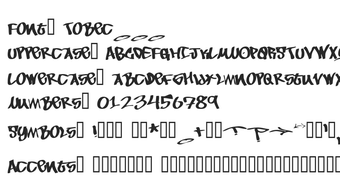 Font▯ Tobec
Uppercase▯ ABCDEFGHIJKLMNOPQRSTUVWX
Lowercase▯ ABCDEFGHIJKLMNOPQRSTUVWXY
Numbers▯ 0123456789
Symbols▯ !▯▯▯ ▯▯*▯▯
Accents▯ ▯▯▯▯▯▯▯ ▯▯▯▯▯▯▯▯▯▯▯▯▯▯▯▯▯▯